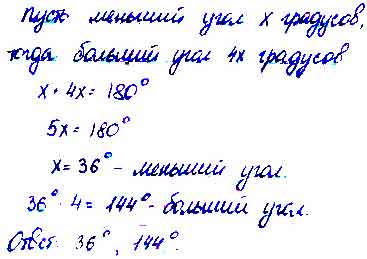 Пусть меньший угол x градусов,
тогда больший угол 4x градусов
x + 4x = 180°
5x = 180°
x = 36° - меньший угол.
36° · 4 = 144° - больший угол.
Ответ: 36°, 144°.